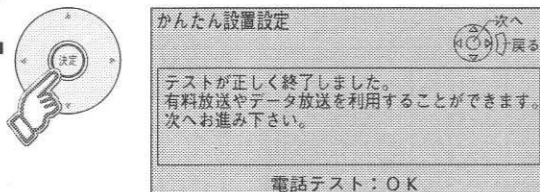 決定
かんたん設置設定
次へ
戻る
テストが正しく終了しました。
有料放送やデータ放送を利用することができます。
次へお進み下さい。
電話テスト：ＯＫ